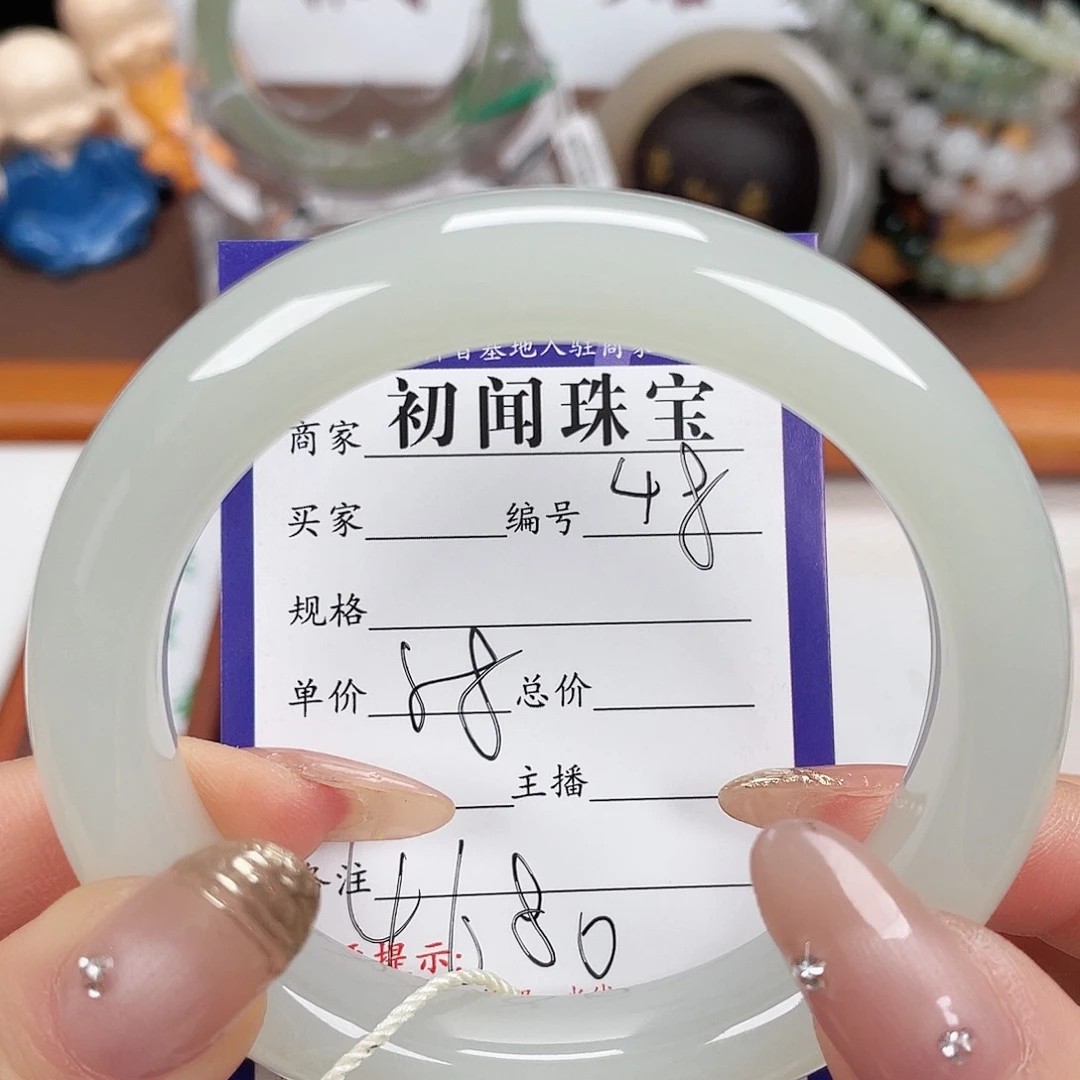 基地入驻商家
商家 初闻珠宝
买家 编号 48
规格
单价 58 总价
主播
备注
4680
提示: